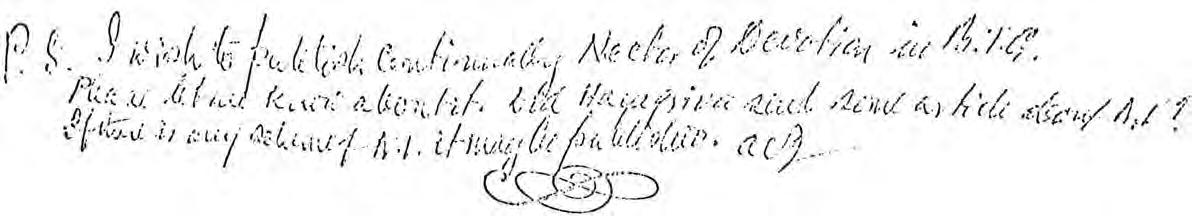 P.S. I wish to publish continually Nectar of Devotion in B.T.G.
Please let me know about it. Did Hayagriva send some article about N.V?
If there is any scheme of N.V. it may be published. acB